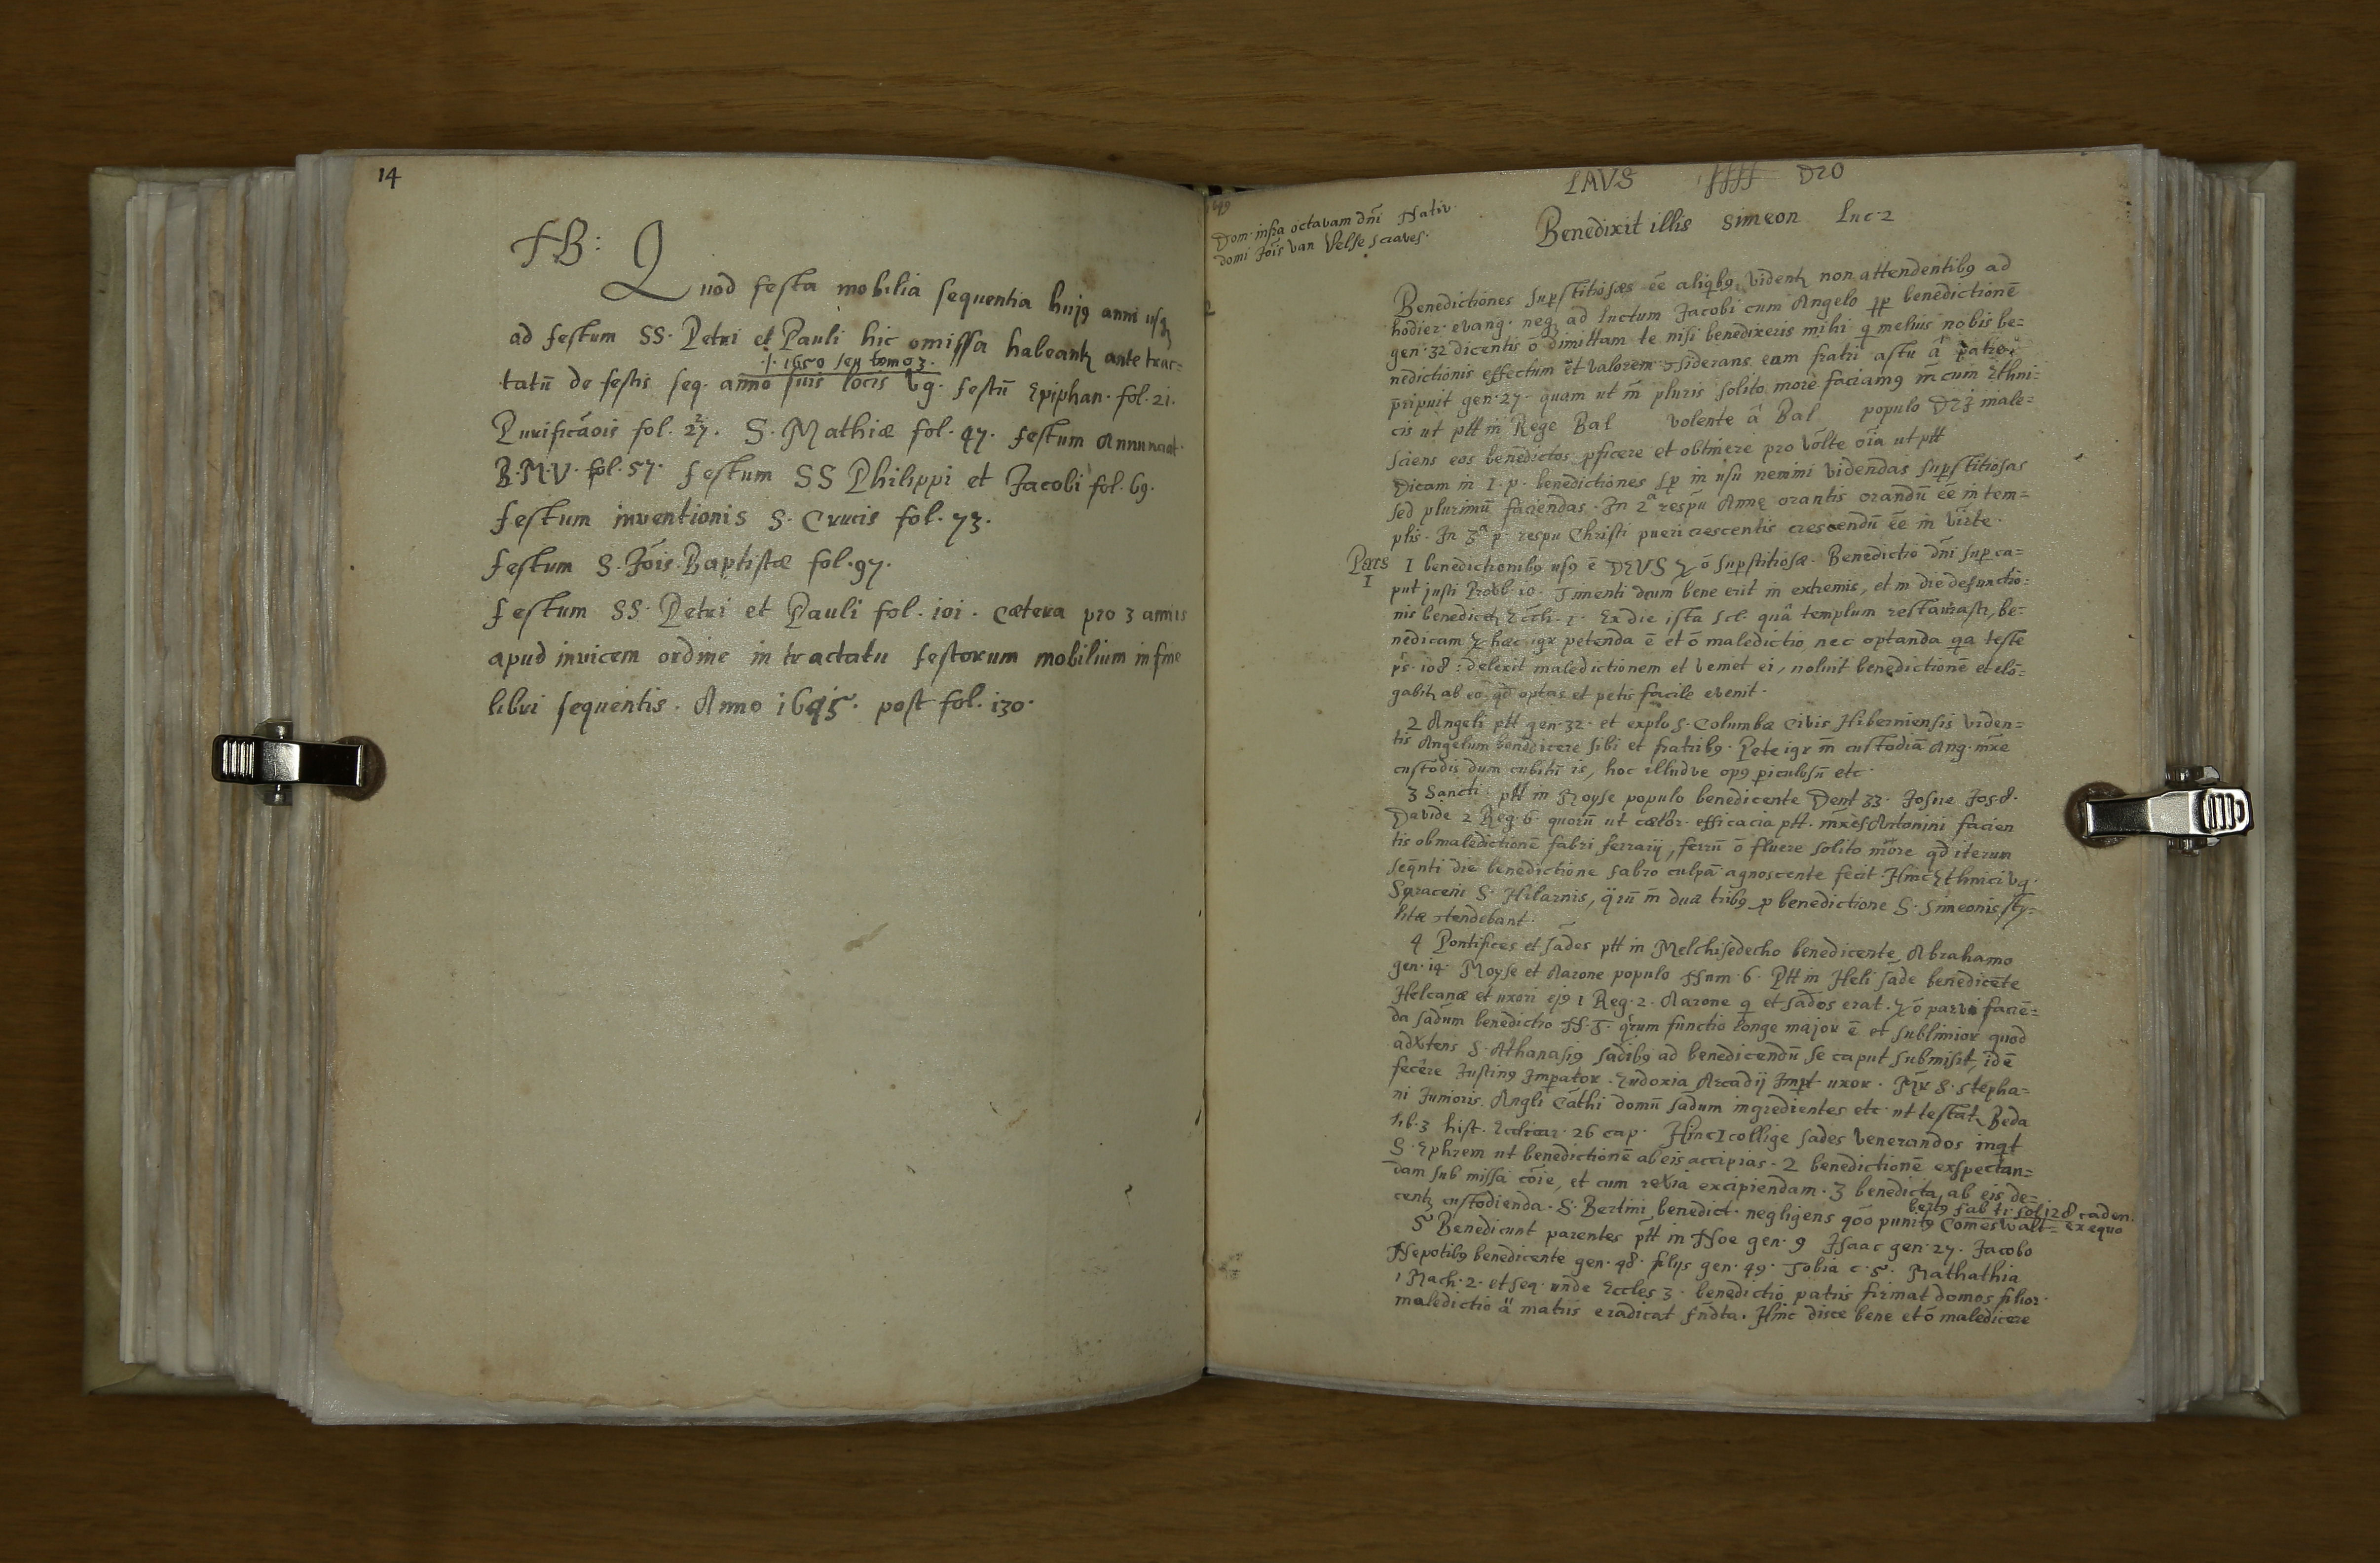 14
NB: Quod festa mobilia sequentia huj9 anni usq
ad festum SS. Petri et Pauli hic omissa habeantr ante trac=
.1. 1650 seu tomo 3.
tatū de festis seq. anno suis locis vg. festū Epiphan. fol. 21.
Purificāois fol. 27. S. Mathiæ fol. 47. festum Annunciat.
B.M.V. fol. 57. festum SS Philippi et Jacobi fol. 69.
festum inventionis S. Crucis fol. 73.
festum S. Jōis Baptistæ fol. 97.
festum SS. Petri et Pauli fol. 101. Cætera pro 3 annis
apud invicem ordine in tractatu festorum mobilium in fine
libri sequentis. Anno 1645. post fol. 130.
LAVS DEO
Dom. infra octavam dñi Nativ.
domi Jōis van Velse
Benedixit illis Simeon Luc. 2
Benedictiones supstitiosas ēē aliqib9 videntr non attendentib9 ad
hodier. evang. neq ad luctum Jacobi cum Angelo benedictionē
gen. 32 dicentis ō dimittam te nisi benedixeris mihi q melius nobis be=
nedictionis effectum et valorem siderans eam fratri astu â patre
p̄ripuit gen. 27. quam ut m̄ pluris solito more faciam9 m̄ cum Ethni=
cis ut ptt in Rege Bal volente â Bal populo DEI male=
sciens eos benedictos pficere et obtinere pro volte oīa ut ptt
Dicam in I. p. benedictiones sp in usu nemini videndas supstitiosas
sed plurimū faciendas. In 2ª respū Annę orantis orandū ēē in tem=
plis. In 3ª p. respu Christi pueri crescentis crescendū ēē in virte.
Pars I
I benedictionib9 us9 ē DEUS ō supstitiosæ. Benedictio dñi sup ca=
put justi Provb. 10. Timenti deum bene erit in extremis, et in die defunctio=
nis benedicetr Eccli. 1. Ex die ista scl. quâ templum restaurastr, be=
nedicam hæc igr petenda ē et ō maledictio nec optanda qa teste
ps. 108: dilexit maledictionem et veniet ei, noluit benedictionē et elō=
gabitr ab eo. qd optas et petis facile evenit.
2 Angeli ptt gen. 32. et explo S. Columbæ Civis Hiberniensis viden=
tis Angelum benedicere sibi et fratrib9. Pete igr m̄ custodiā Ang. mxe
custodis dum cubitū is, hoc illudve op9 piculosū etc.
3 Sancti ptt in Moyse populo benedicente Deut 33. Josue Jos. 8.
Davide 2 Reg. 6. quorū ut cætor. efficacia ptt. Antonini facien
tis ob maledictionē fabri ferrarij, ferrū ō fluere solito more qd iterum
seqnti die benedictione fabro culpā agnoscente fecit. Hinc Ethnici vg.
Saraceni S. Hilarnis, qrū m̄ duæ trib9 p benedictione S. Simeonis sty=
litæ tendebant.
4 Pontifices et sades ptt in Melchisedecho benedicente Abrahamo
gen. 14. Moyse et Aarone populo Num. 6. Ptt in Heli sade benedicēte
Helcanæ et uxori ej9 1 Reg. 2. Aarone q et sados erat. ō parvi faciē=
da sadum benedictio N.T. qrum functio longe major ē et sublimior quod
advtens S. Athanasi9 sadib9 ad benedicendū se caput submisit, idē
fecêre Justin9 Impator. Eudoxia Arcadij Impt. uxor. S. Stepha=
ni Junioris. Angli Cathi domū sadum ingredientes etc. ut testatr Beda
lib. 3 hist. 26 cap. Hinc I collige sades venerandos inqt
S. Ephrem ut benedictionē ab eis accipias. 2 benedictionē exspectan=
dam sub missa cōie, et cum revia excipiendam. 3 benedicta ab eis de=
centr custodienda. S. Bertini benedict. negligens qōo punit9 Comes Walt= ex equo
bert9 fol 128 caden.
5 Benedicunt parentes ptt in Noe gen. 9 Isaac gen. 27. Jacobo
Nepotib9 benedicente gen. 48. filijs gen. 49. Tobia c. 5. Mathathia
1 Mach. 2. et seq. unde Eccles 3. benedictio patris firmat domos filior.
maledictio ā matris eradicat fūdta. Hinc disce bene et ō maledicere